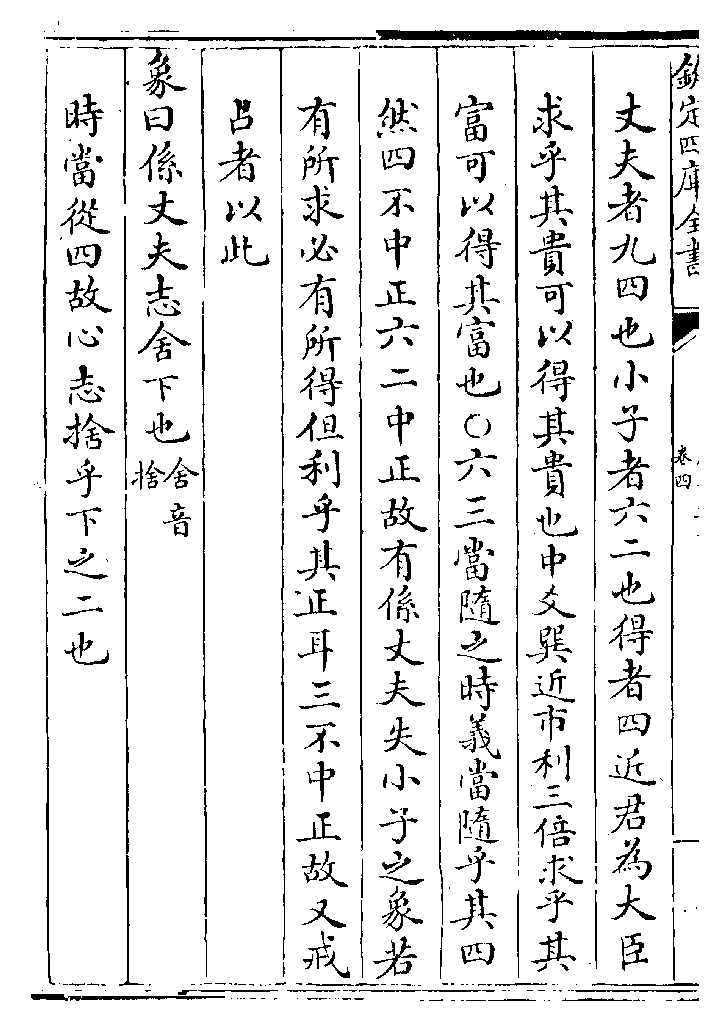 欽定四庫全書
卷四
丈夫者九四也小子者六二也得者四近君為大臣
求乎其貴可以得其貴也中爻巽近市利三倍求乎其
富可以得其富也○六三當隨之時義當隨乎其四
然四不中正六二中正故有係丈夫失小子之象若
有所求必有所得但利乎其正耳三不中正故又戒
占者以此
象曰係丈夫志舍下也舍音
捨
時當從四故心志捨乎下之二也